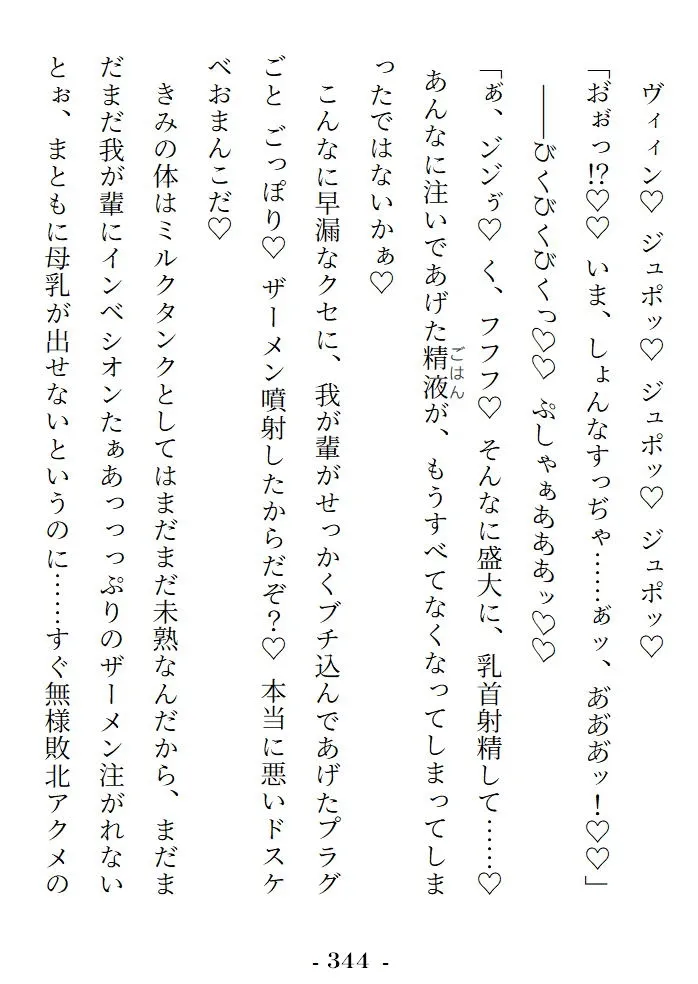 ヴィィン♡　ジュポッ♡　ジュポッ♡　ジュポッ♡
「お゙ぉ゙っ!?♡♡　いま、しょんなすっぢゃ……ぁ゙ッ、あ゙あ゙あ゙ッ！♡♡」
――びくびくびくっ♡♡　ぷしゃぁあああッ♡♡
「ぁ゙、ジジぅ゙♡　く、フフフ♡　そんなに盛大に、乳首射精して……♡
あんなに注いであげた精液が、もうすべてなくなってしまってしま
ごはん
ったではないかぁ♡
こんなに早漏なクセに、我が輩がせっかくブチ込んであげたプラグ
ごと　ごっぽり♡　ザーメン噴射したからだぞ？♡　本当に悪いドスケ
べおまんこだ♡
きみの体はミルクタンクとしてはまだまだ未熟なんだから、まだま
だまだ我が輩にインベシオンたぁあっっっぷりのザーメン注がれない
とぉ、まともに母乳が出せないというのに……すぐ無様敗北アクメの
- 344 -